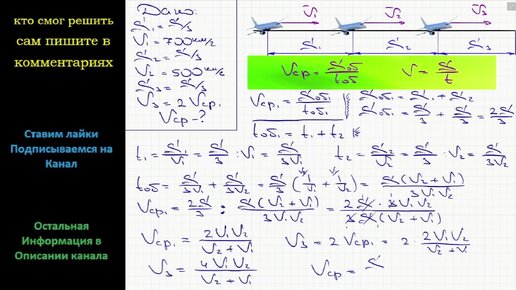 кто смог решить
сам пишите в
комментариях
Ставим лайки
Подписываемся на
Канал
Остальная
Информация в
Описании канала
Дано:
S₁ = S/3
V₁ = 700 км/ч
S₂ = S/3
V₂ = 500 км/ч
S₃ = S/3
V₃ = 2 Vср₁
Vср - ?
V₁ V₂ V₃
S₁ S₂ S₃
Vср = Sоб/tоб V = S/t
Vср₁ = Sоб₁/tоб₁
Sоб₁ = S₁ + S₂
Sоб₁ = S/3 + S/3 = 2S/3
tоб₁ = t₁ + t₂
t₁ = S₁/V₁ = S/3 : V₁ = S/3V₁ t₂ = S₂/V₂ = S/3 : V₂ = S/3V₂
tоб = S/3V₁ + S/3V₂ = S/3 (1/V₁ + 1/V₂) = S(V₂ + V₁)/3V₁V₂
Vср₁ = 2S/3 : S(V₂ + V₁)/3V₁V₂ = 2S · 3V₁V₂/3S(V₂ + V₁)
Vср₁ = 2V₁V₂/V₂ + V₁ V₃ = 2Vср₁ = 2 · 2V₁V₂/V₂ + V₁
V₃ = 4V₁V₂/V₂ + V₁ Vср = S